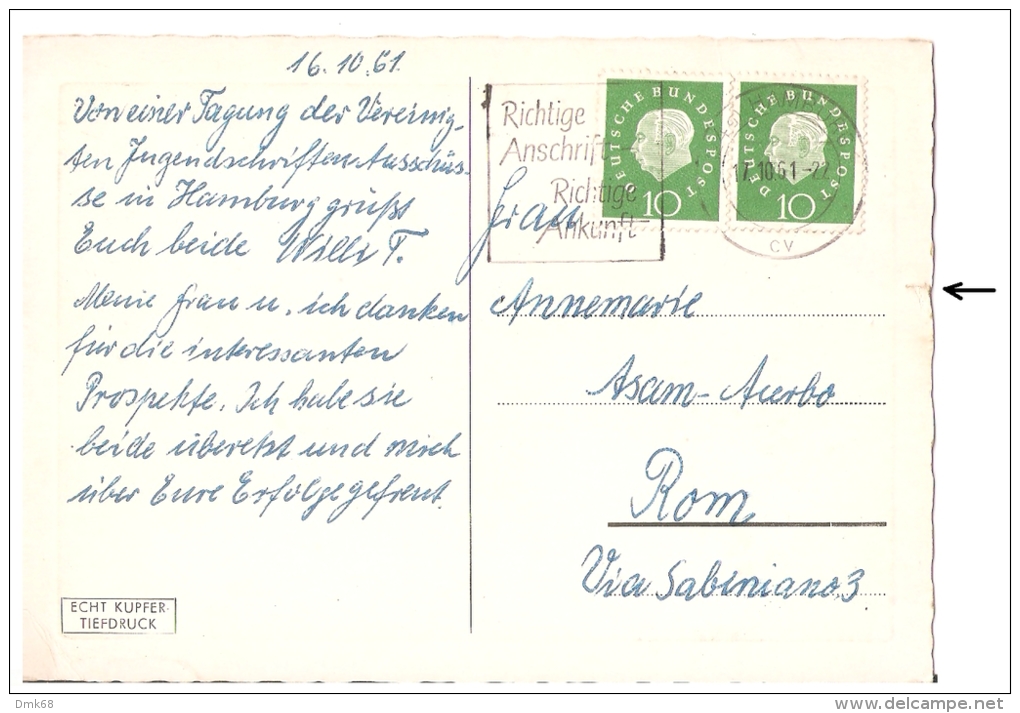 16.10.61.
Von einer Tagung der Vereinig-
ten Jugendschriften-Ausschüs-
se in Hamburg grüßt
Euch beide Willi F.
Meine Frau u. ich danken
für die interessanten
Prospekte. Ich habe sie
beide überetzt und mich
über Eure Erfolge gefreut.
ECHT KUPFER-
TIEFDRUCK
Richtige
Anschrift
Richtige
Ankunft
DEUTSCHE BUNDESPOST
10
DEUTSCHE BUNDESPOST
10
17.10.61-22
CV
Frau
Annemarie
Asam-Acerbo
Rom
Via Sabiniano 3
Dmk68
delcampe.net